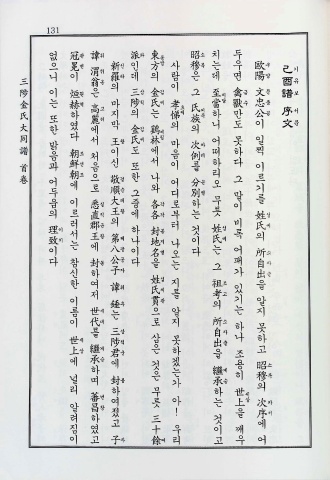 131
己酉譜 序文
기유보 서문
歐陽 文忠公이 일찍 이르기를 姓氏의 所自出을 알지 못하고 昭穆의 次序에 어
두우면 禽獸만도 못하다 그 말이 비록 어폐가 있기는 하나 조용히 世上을 깨우
치는데 至當하니 어떠하리오 무릇 姓氏는 그 祖考의 所自出을 繼承하는 것이고
昭穆은 그 氏族의 次例를 分別하는 것이다
사람이 孝悌의 마음이 어디로부터 나오는 지를 알지 못하겠는가 아! 우리
東方의 金氏는 鷄林에서 나와 各各 封地名을 姓氏貫으로 삼은 것은 무릇 三十餘
派인데 三陟의 金氏도 또한 그중에 하나이다
新羅의 마지막 王이신 敬順大王의 第八公子 諱 錘는 三陟君에 封하여졌고 子
諱 渭翁은 高麗에서 처음으로 悉直郡王에 封하여져 世代를 繼承하며 蕃昌하였고
冠冕이 烜赫하였다 朝鮮朝에 이르러서는 참신한 이름이 世上에 널리 알려짐이
없으니 이는 또한 밝음과 어두움의 理致이다
三陟金氏大同譜 首卷